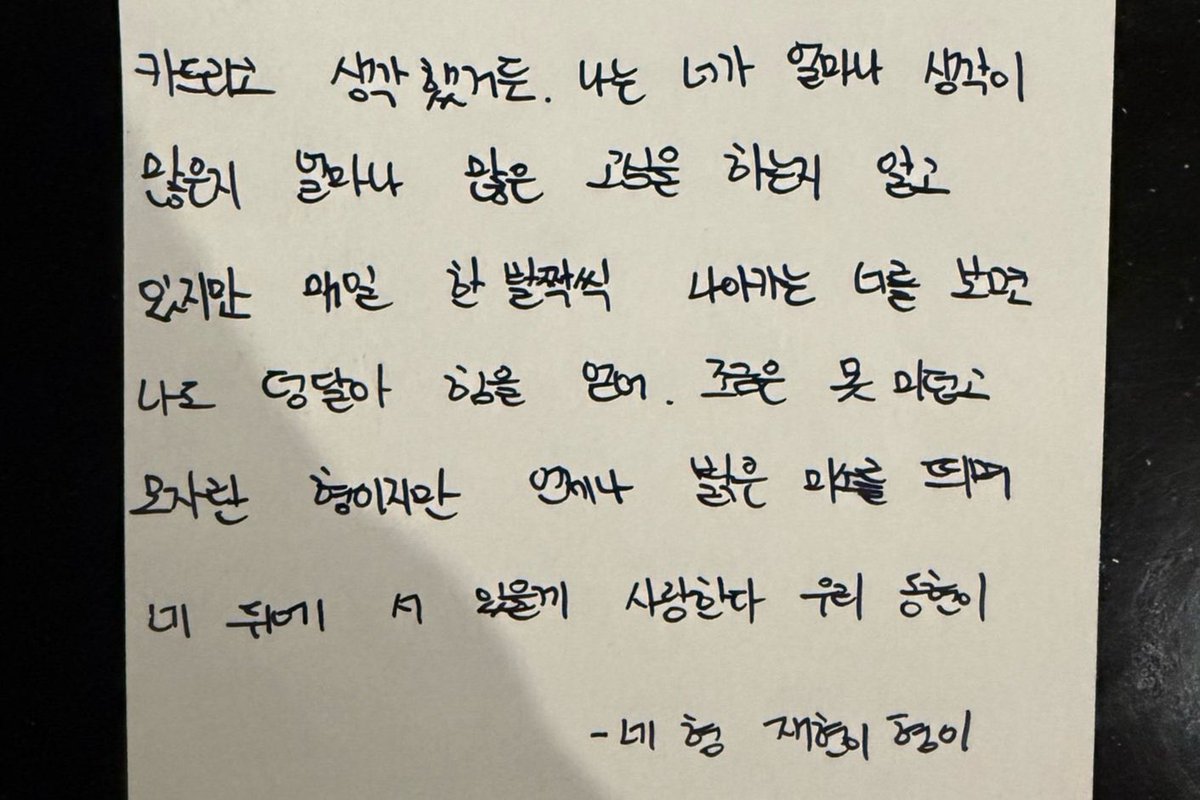 카드라고 생각했거든. 나는 너가 얼마나 생각이
많은지 얼마나 많은 고민을 하는지 알고
있지만 매일 한 발짝씩 나아가는 너를 보면
나도 덩달아 힘을 얻어. 조금은 못 미덥고
모자란 형이지만 언제나 밝은 미소를 띄며
네 뒤에 서 있을게 사랑한다 우리 동현이
- 네 형 재현이 형이